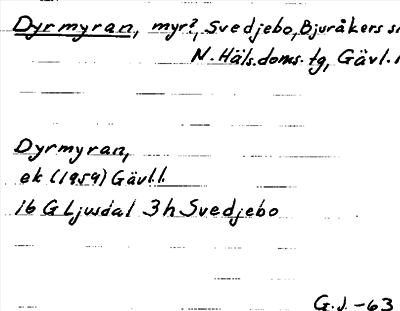 Dyrmyran, myr?, Svedjebo, Bjuråkers
N. Häls. doms. tg, Gävl.
Dyrmyran,
ek (1959) Gävl.l.
16 G Ljusdal 3h Svedjebo
G.J. -63